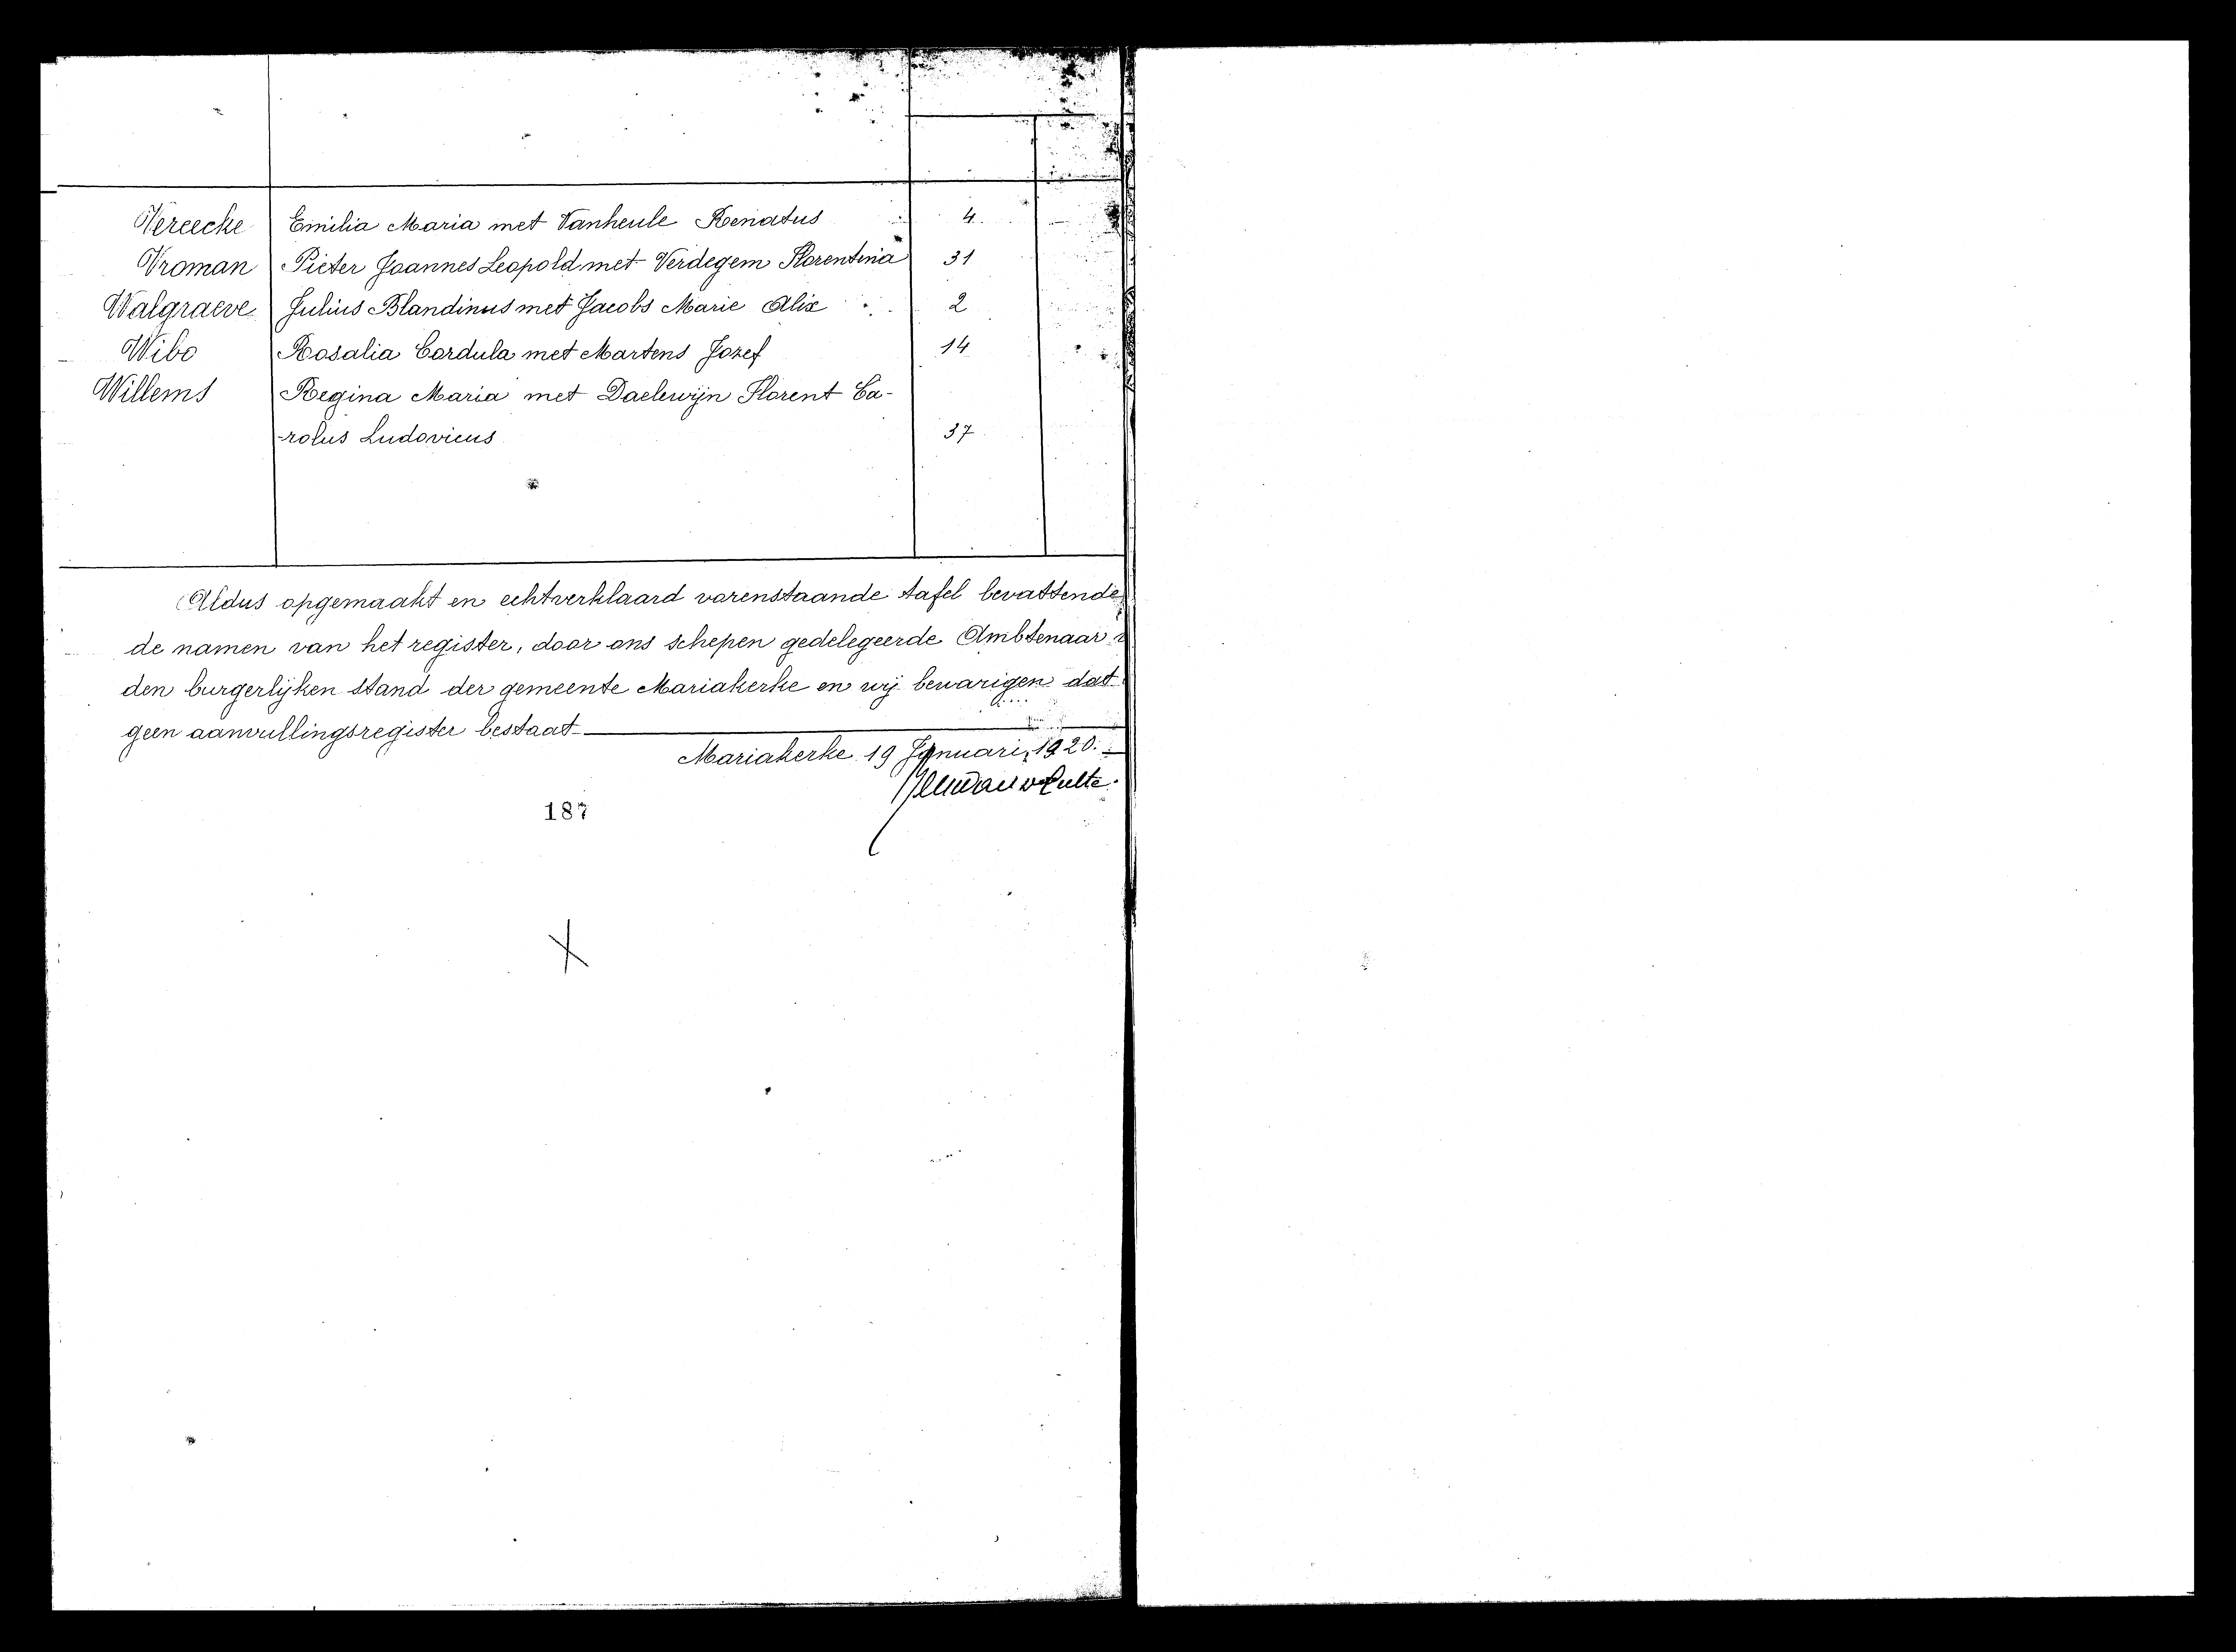 Vereecke Emilia Maria met Vanheule Renatus 4
Vroman Pieter Joannes Leopold met Verdegem Florentina 31
Walgraeve Julius Blandinus met Jacobs Marie Alix 2
Wibo Rosalia Cordula met Martens Jozef 14
Willems Regina Maria met Daelewijn Florent Ca-
-rolus Ludovicus 37
Aldus opgemaakt en echtverklaard vorenstaande tafel bevattende
de namen van het register, door ons schepen gedelegeerde Ambtenaar
den burgerlijken stand der gemeente Mariakerke en wij bewarigen dat
geen aanvullingsregister bestaat
Mariakerke 19 Januari, 1920.
187